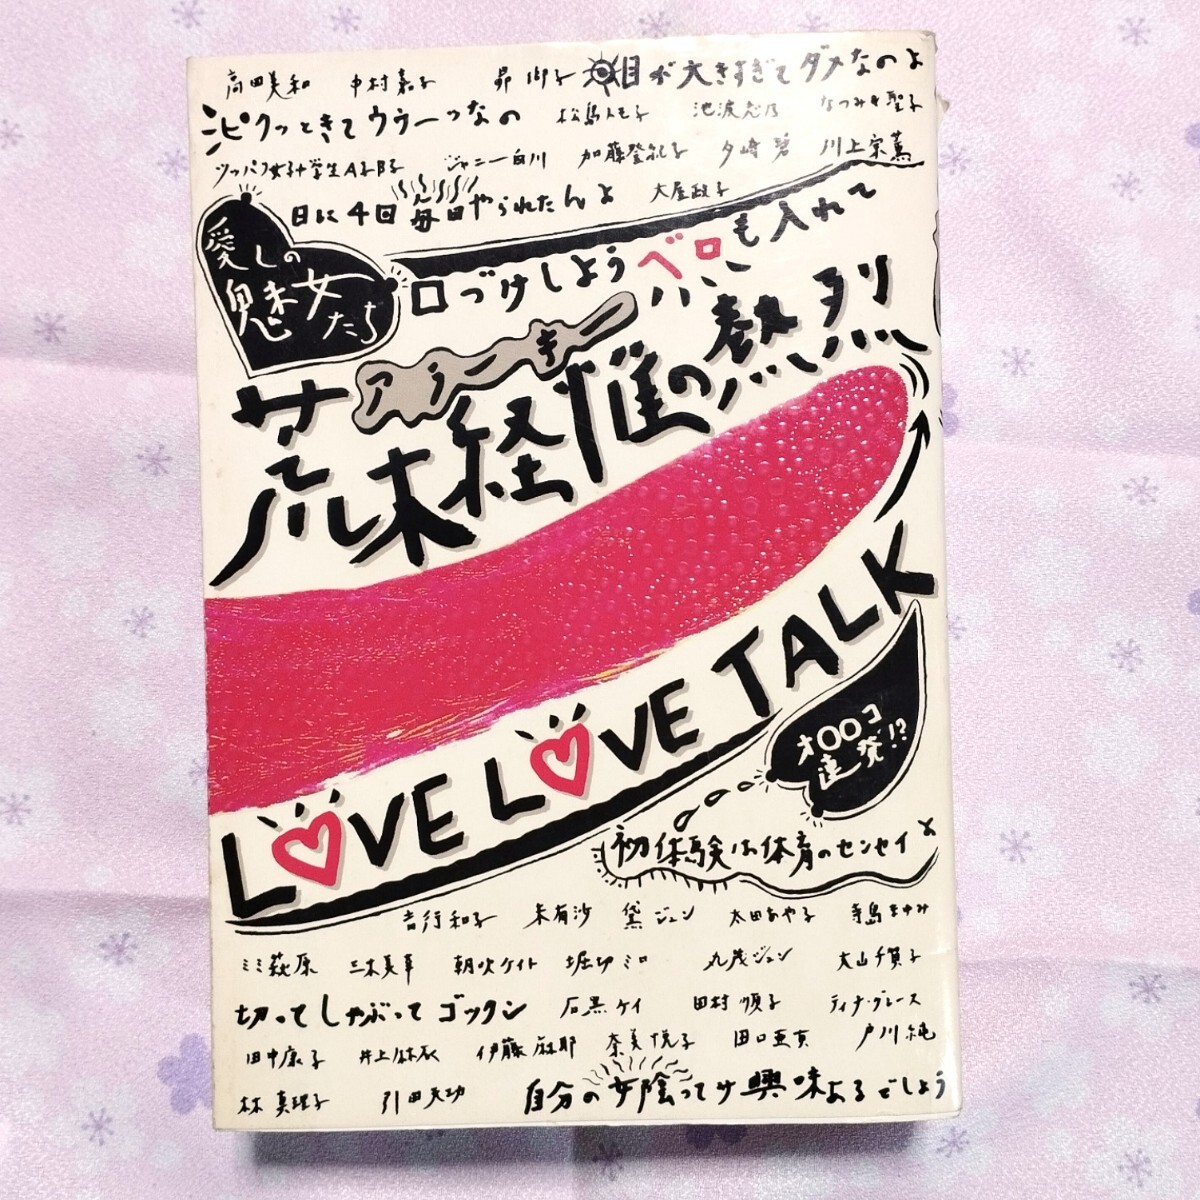 高田美和 中村嘉子 昴 御子 目が大きすぎてダメなのよ
ピクッときてウゥーッなの 松島トモ子 池波志乃 なつみ聖子
ツッパリ女子大学生A子B子 ジャニー白川 加藤登紀子 夕崎碧 川上宗薫
日に4回毎日やられたんよ 大屋政子
愛しの
魅女
たち
口づけしようベロも入れて
アラーキー
荒木経惟の熱烈
LOVE LOVE TALK
オ〇〇コ
連発!?
初体験は体育のセンセイよ
吉行和子 朱有沙 黛ジュン 太田あや子 寺島まゆみ
ミミ萩原 三木美幸 朝吹ケイト 堀切ミロ 九茂ジュン 大山千賀子
切ってしゃぶってゴックン 石黒ケイ 田村順子 ティナ・グレース
田中康子 井上麻衣 伊藤麻耶 奈美悦子 田口亜真 戸川純
林真理子 引田天功 自分の女陰って興味あるでしょう